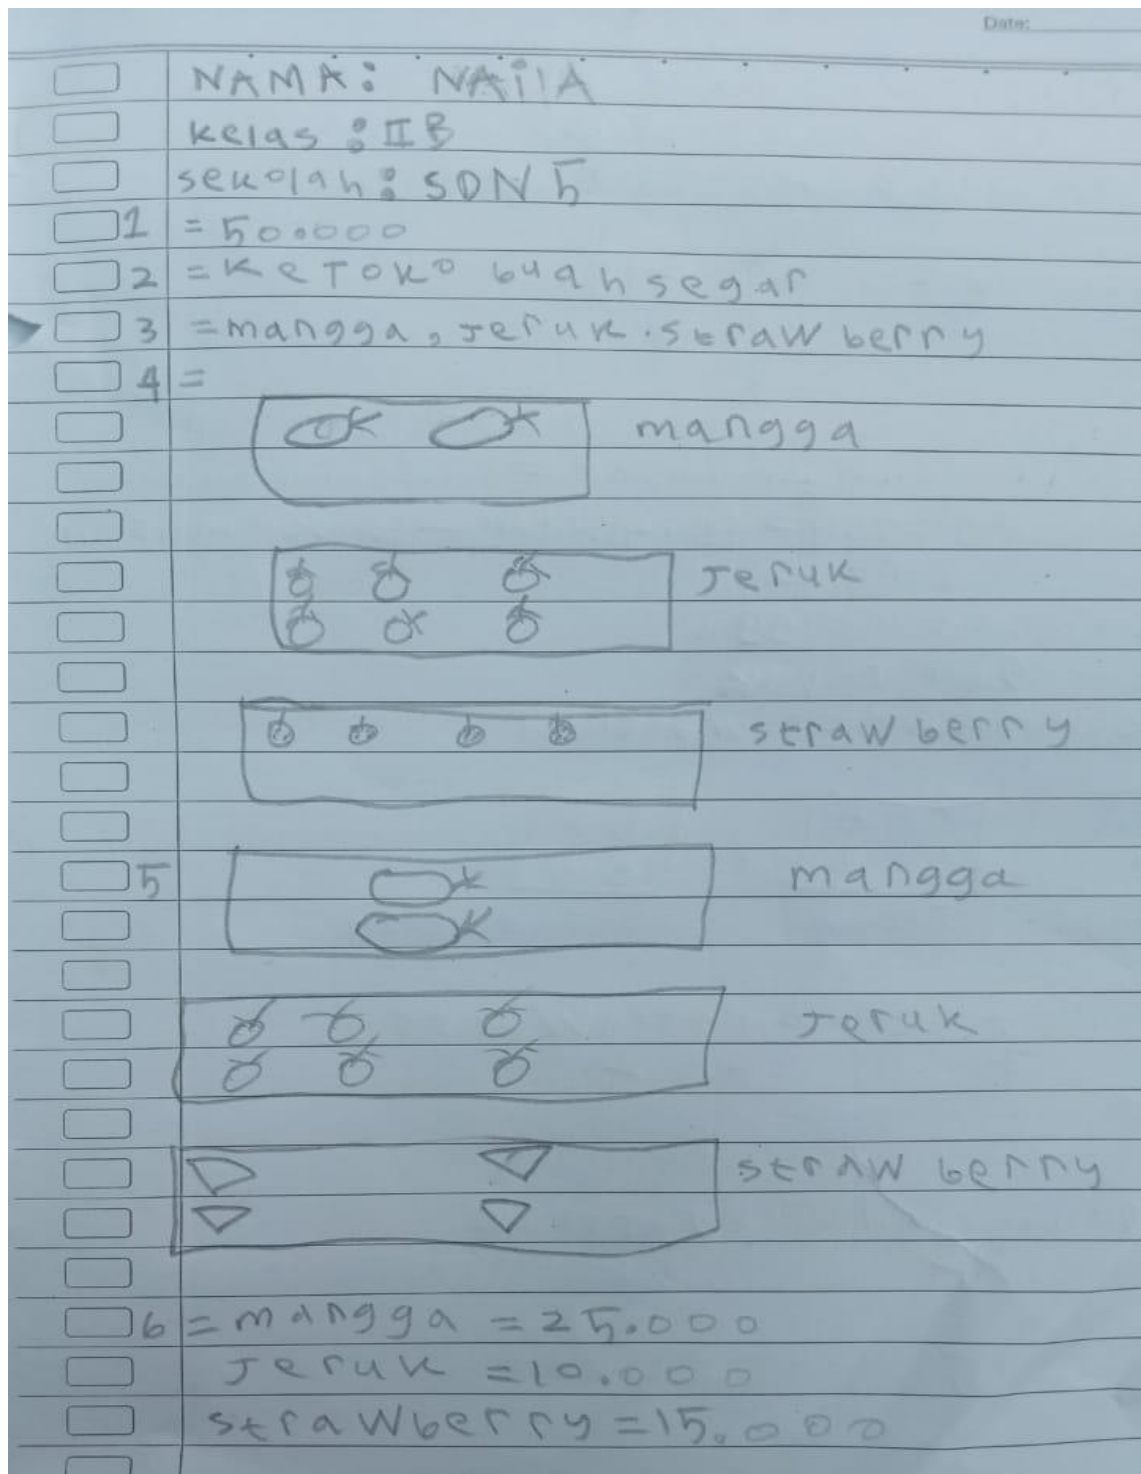 Date:
NAMA: NAilA
kelas : II B
sekolah: SDN 5
1 = 50.000
2 = Ke TOKO buah segar
3 = mangga, Jeruk. straw berry
4 =
mangga
Jeruk
straw berry
5 mangga
Jeruk
straw berry
6 = mangga = 25.000
Jeruk = 10.000
strawberry = 15.000